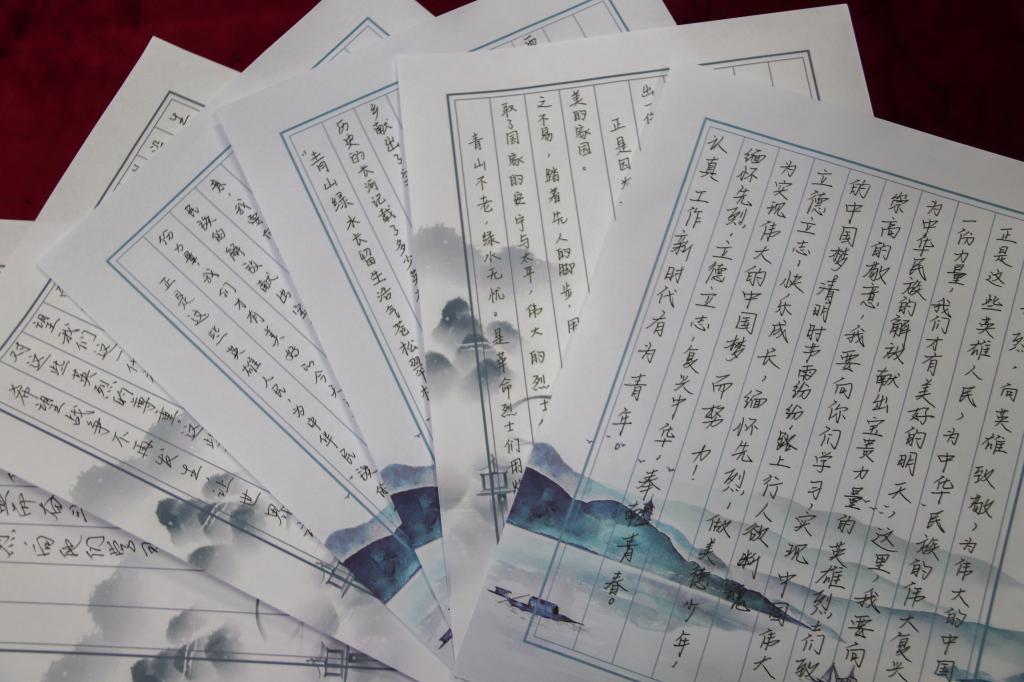 烈,向英雄致敬,为伟大的中国
正是这些英雄人民,为中华民族的伟大复兴
一份力量,我们才有美好的明天,这里,我要向
为中华民族的解放献出宝贵力量的英雄烈们致
崇高的敬意,我要向你们学习,实现中国伟大
的中国梦 清明时节雨纷纷,路上行人欲断魂
立德立志,快乐成长,缅怀先烈,做美德少年!
为实现伟大的中国梦 而努力!
缅怀先烈,立德立志,复兴中华,奉献青春。
认真工作新时代有为青年。
出一
正是因
美的家园。
之不易,踏着先人的脚步,用
取了国家的安宁与太平,伟大的烈士
青山不老,绿水无忧。是革命烈士们用
乡献出了
历史的长河记载了多少英
"青山绿水长留生浩气苍松翠柏
意,我要
民族的解放献出宝
份力量我们才有美好的今天
正是这些英雄人民,为中华民
望我们这一代
对这些英烈的尊重。这些
希望战争不再发生 让世界